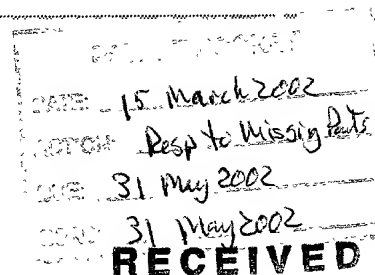 DATE: 15 March 2002
ACTION: Resp to Missing Parts
31 May 2002
31 May 2002
RECEIVED